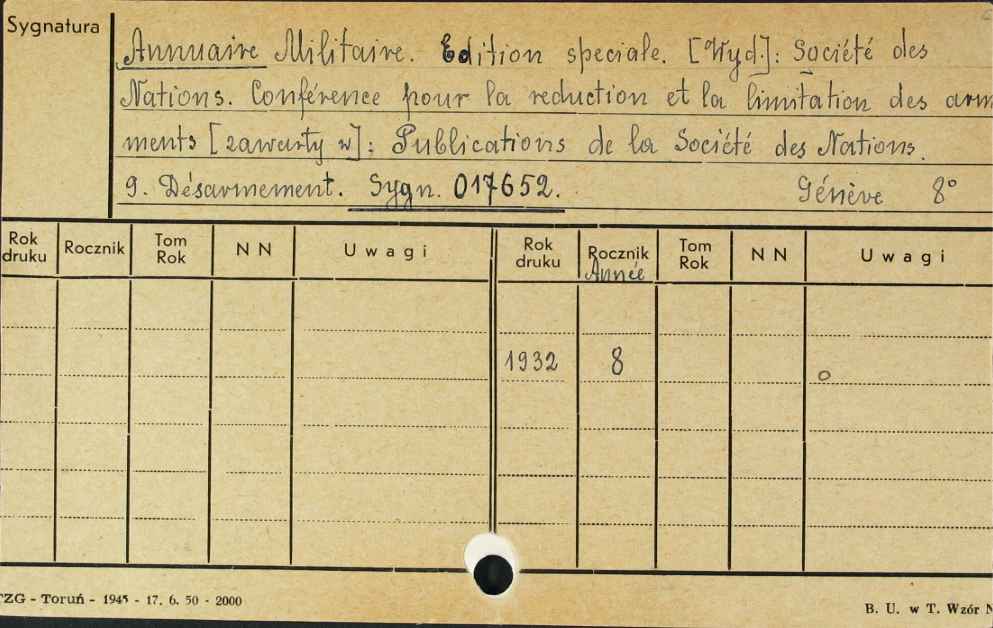 Sygnatura
Annuaire Militaire. Edition speciale. [Wyd.]: Société des
Nations. Conférence pour la reduction et la limitation des arm
ments [zawarty w]: Publications de la Société des Nations.
9. Désarmement. Sygn. 017652. Génève 8°
Rok druku Rocznik Tom Rok N N Uwagi Rok druku Rocznik Année Tom Rok N N Uwagi
1932 8
TZG - Toruń - 1945 - 17. 6. 50 - 2000
B. U. w T. Wzór N